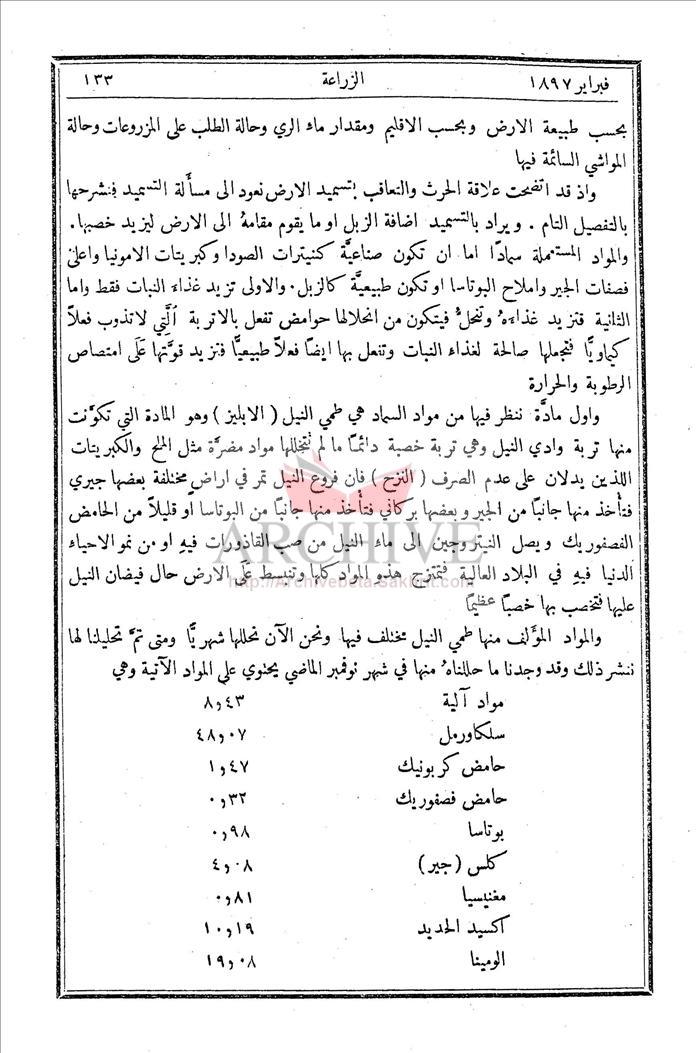 فبراير ١٨٩٧ الزراعة ١٣٣
بحسب طبيعة الارض وبحسب الاقليم ومقدار ماء الري وحالة الطلب على المزروعات وحالة
المواشي السائمة فيها
واذ قد اتضحت علاقة الحرث والتعاقب بتسميد الارض نعود الى مسأَلة التسميد فنشرحها
بالتفصيل التام . ويراد بالتسميد اضافة الزبل او ما يقوم مقامهُ الى الارض ليزيد خصبها.
والمواد المستعملة سمادًا اما ان تكون صناعيَّة كنيترات الصودا وكبريتات الامونيا واعلى
فصفات الجير واملاح البوتاسا او تكون طبيعيَّة كالزبل. والاولى تزيد غذاء النبات فقط واما
الثانية فتزيد غذاءهُ وتنحلُّ فيتكون من انحلالها حوامض تفعل بالاتربة الَّتي لاتذوب فعلاً
كيماويًّا فتجعلها صالحة لغذاء النبات وتفعل بها ايضًا فعلاً طبيعيًّا فتزيد قوَّتها عَلَى امتصاص
الرطوبة والحرارة
واول مادَّة ننظر فيها من مواد السماد هي طمي النيل (الابليز) وهو المادة التي تكوَّنت
منها تربة وادي النيل وهي تربة خصبة دائمًا ما لم تتخللها مواد مضرَّة مثل الملح والكبريتات
اللذين يدلان على عدم الصرف (النزح) فان فروع النيل تمر في اراضٍ مختلفة بعضها جيري
فتأخذ منها جانبًا من الجير وبعضها بركاني فتأخذ منها جانبًا من البوتاسا او قليلاً من الحامض
الفصفوريك ويصل النيتروجين الى ماء النيل من صب القاذورات فيهِ او من نمو الاحياء
الدنيا فيهِ في البلاد العالية فتمتزج هذه المواد كلها وتنبسط عَلَى الارض حال فيضان النيل
عليها فتخصب بها خصبًا عظيمًا
والمواد المؤَلف منها طمي النيل مختلف فيها ونحن الآن نحللها شهريًّا ومتى تمَّ تحليلنا لها
ننشر ذلك وقد وجدنا ما حللناهُ منها في شهر نوفمبر الماضي يحتوي على المواد الآتية وهي
مواد آلية ٨,٤٣
سلكاورمل ٤٨,٠٧
حامض كربونيك ١,٤٧
حامض فصفوريك ٠,٣٢
بوتاسا ٠,٩٨
كلس (جير) ٤,٠٨
مغنيسيا ٠,٨١
اكسيد الحديد ١٠,١٩
الومينا ١٩,٠٨
ARCHIVE
http://Archivebeta.Sakhrit.com